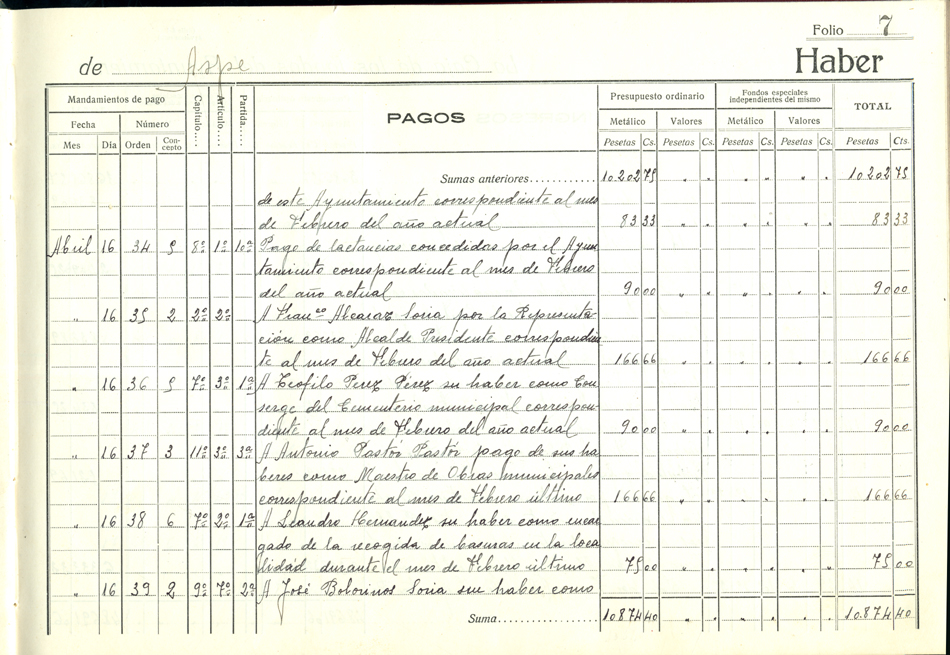 Folio 7
de Aspe
Haber
Mandamientos de pago
Capítulo....
Artículo....
Partida....
PAGOS
Presupuesto ordinario
Fondos especiales
independientes del mismo
TOTAL
Fecha Número Metálico Valores Metálico Valores
Mes Día Orden Con-cepto Pesetas Cs. Pesetas Cs. Pesetas Cs. Pesetas Cs. Pesetas Cts.
Sumas anteriores............ 10.202 75 " " " " " " 10.202 75
de este Ayuntamiento correspondiente al mes
de Febrero del año actual 83 33 " " " " " " 83 33
Abril 16 34 5 8º 1º 10ª Pago de lactancias concedidas por el Ayun
tamiento correspondiente al mes de Febrero
del año actual 90 00 " " " " " " 90 00
" 16 35 2 2º 2º A Franco Alcaraz Soria por la Representa-
ción como Alcalde Presidente correspondien
te al mes de Febrero del año actual 166 66 " " " " " " 166 66
" 16 36 5 7º 3º 1ª A Teofilo Perez Pérez su haber como Con
serge del Cementerio municipal correspon-
diente al mes de Febrero del año actual 90 00 " " " " " " 90 00
" 16 37 3 11º 3º 3ª A Antonio Pastór Pastór pago de sus ha
beres como Maestro de Obras municipales
correspondiente al mes de Febrero último 166 66 " " " " " " 166 66
" 16 38 6 7º 2º 1ª A Leandro Hernandez su haber como encar
gado de la recogida de basuras en la loca
lidad durante el mes de Febrero último 75 00 " " " " " " 75 00
" 16 39 2 9º 7º 2ª A José Botorinos Soria sun haber como
Suma.................... 10.874 40 " " " " " " 10.874 40